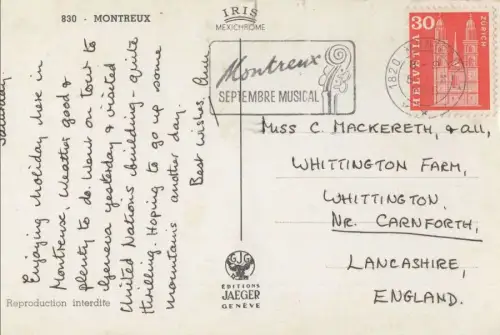 830 - MONTREUX
IRIS
MEXICHROME
Saturday
Enjoying holiday here in
Montreux. Weather good &
plenty to do. Went on tour to
Geneva yesterday & visited
United Nations building - quite
thrilling. Hoping to go up some
mountains another day.
Best wishes,
Montreux
SEPTEMBRE MUSICAL
1820
30
HELVETIA
ZÜRICH
Miss C. MACKERETH, & all,
WHITTINGTON FARM,
WHITTINGTON,
NR. CARNFORTH,
LANCASHIRE,
ENGLAND.
EDITIONS
JAEGER
GENÈVE
Reproduction interdite